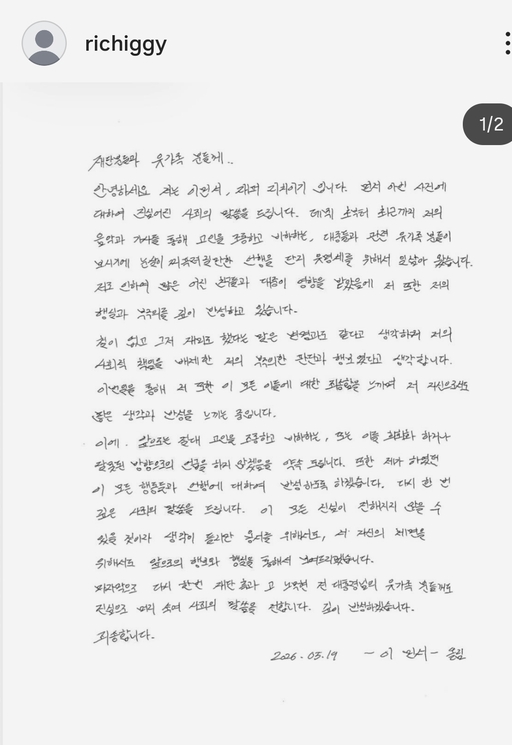 richiggy
1/2
재단분들과 유가족 분들께..
안녕하세요 저는 이민서, 래퍼 리치이기 입니다. 먼저 이번 사건에
대하여 진심어린 사죄의 말씀을 드립니다. 데뷔 초부터 최근까지 저의
음악과 가사를 통해 고인을 조롱하고 비하하는, 대중들과 관련 유가족 분들이
보시기에 눈살이 찌푸려질만한 언행을 단지 유명세를 위해서 일삼아 왔습니다.
저로 인하여 많은 어린 친구들과 대중이 영향을 받았음에 저 또한 저의
행실과 부주의를 깊이 반성하고 있습니다.
철이 없고 그저 재미로 했다는 말은 변명과도 같다고 생각하며 저의
사회적 책임을 배제한 저의 부주의한 판단과 행보였다고 생각합니다.
이번일을 통해 저 또한 이 모든 이들에 대한 죄송함을 느끼며 저 자신으로서도
많은 생각과 반성을 느끼는 중입니다.
이에. 앞으로는 절대 고인을 조롱하고 비하하는, 또는 이를 희화화 하거나
잘못된 방향으로의 언급을 하지 않겠음을 약속 드립니다. 또한 제가 하였던
이 모든 행동들과 언행에 대하여 반성하도록 하겠습니다. 다시 한 번
깊은 사죄의 말씀을 드립니다. 이 모든 진심이 전해지지 않을 수
있을 것이라 생각이 들지만 용서를 위해서도, 저 자신의 체면을
위해서도 앞으로의 행보와 행실을 통해서 보여드리겠습니다.
마지막으로 다시 한번 재단 측과 고 노무현 전 대통령님의 유가족 분들께도
진심으로 머리 숙여 사죄의 말씀을 전합니다. 깊이 반성하겠습니다.
죄송합니다.
2026.03.19 - 이 민서 - 올림